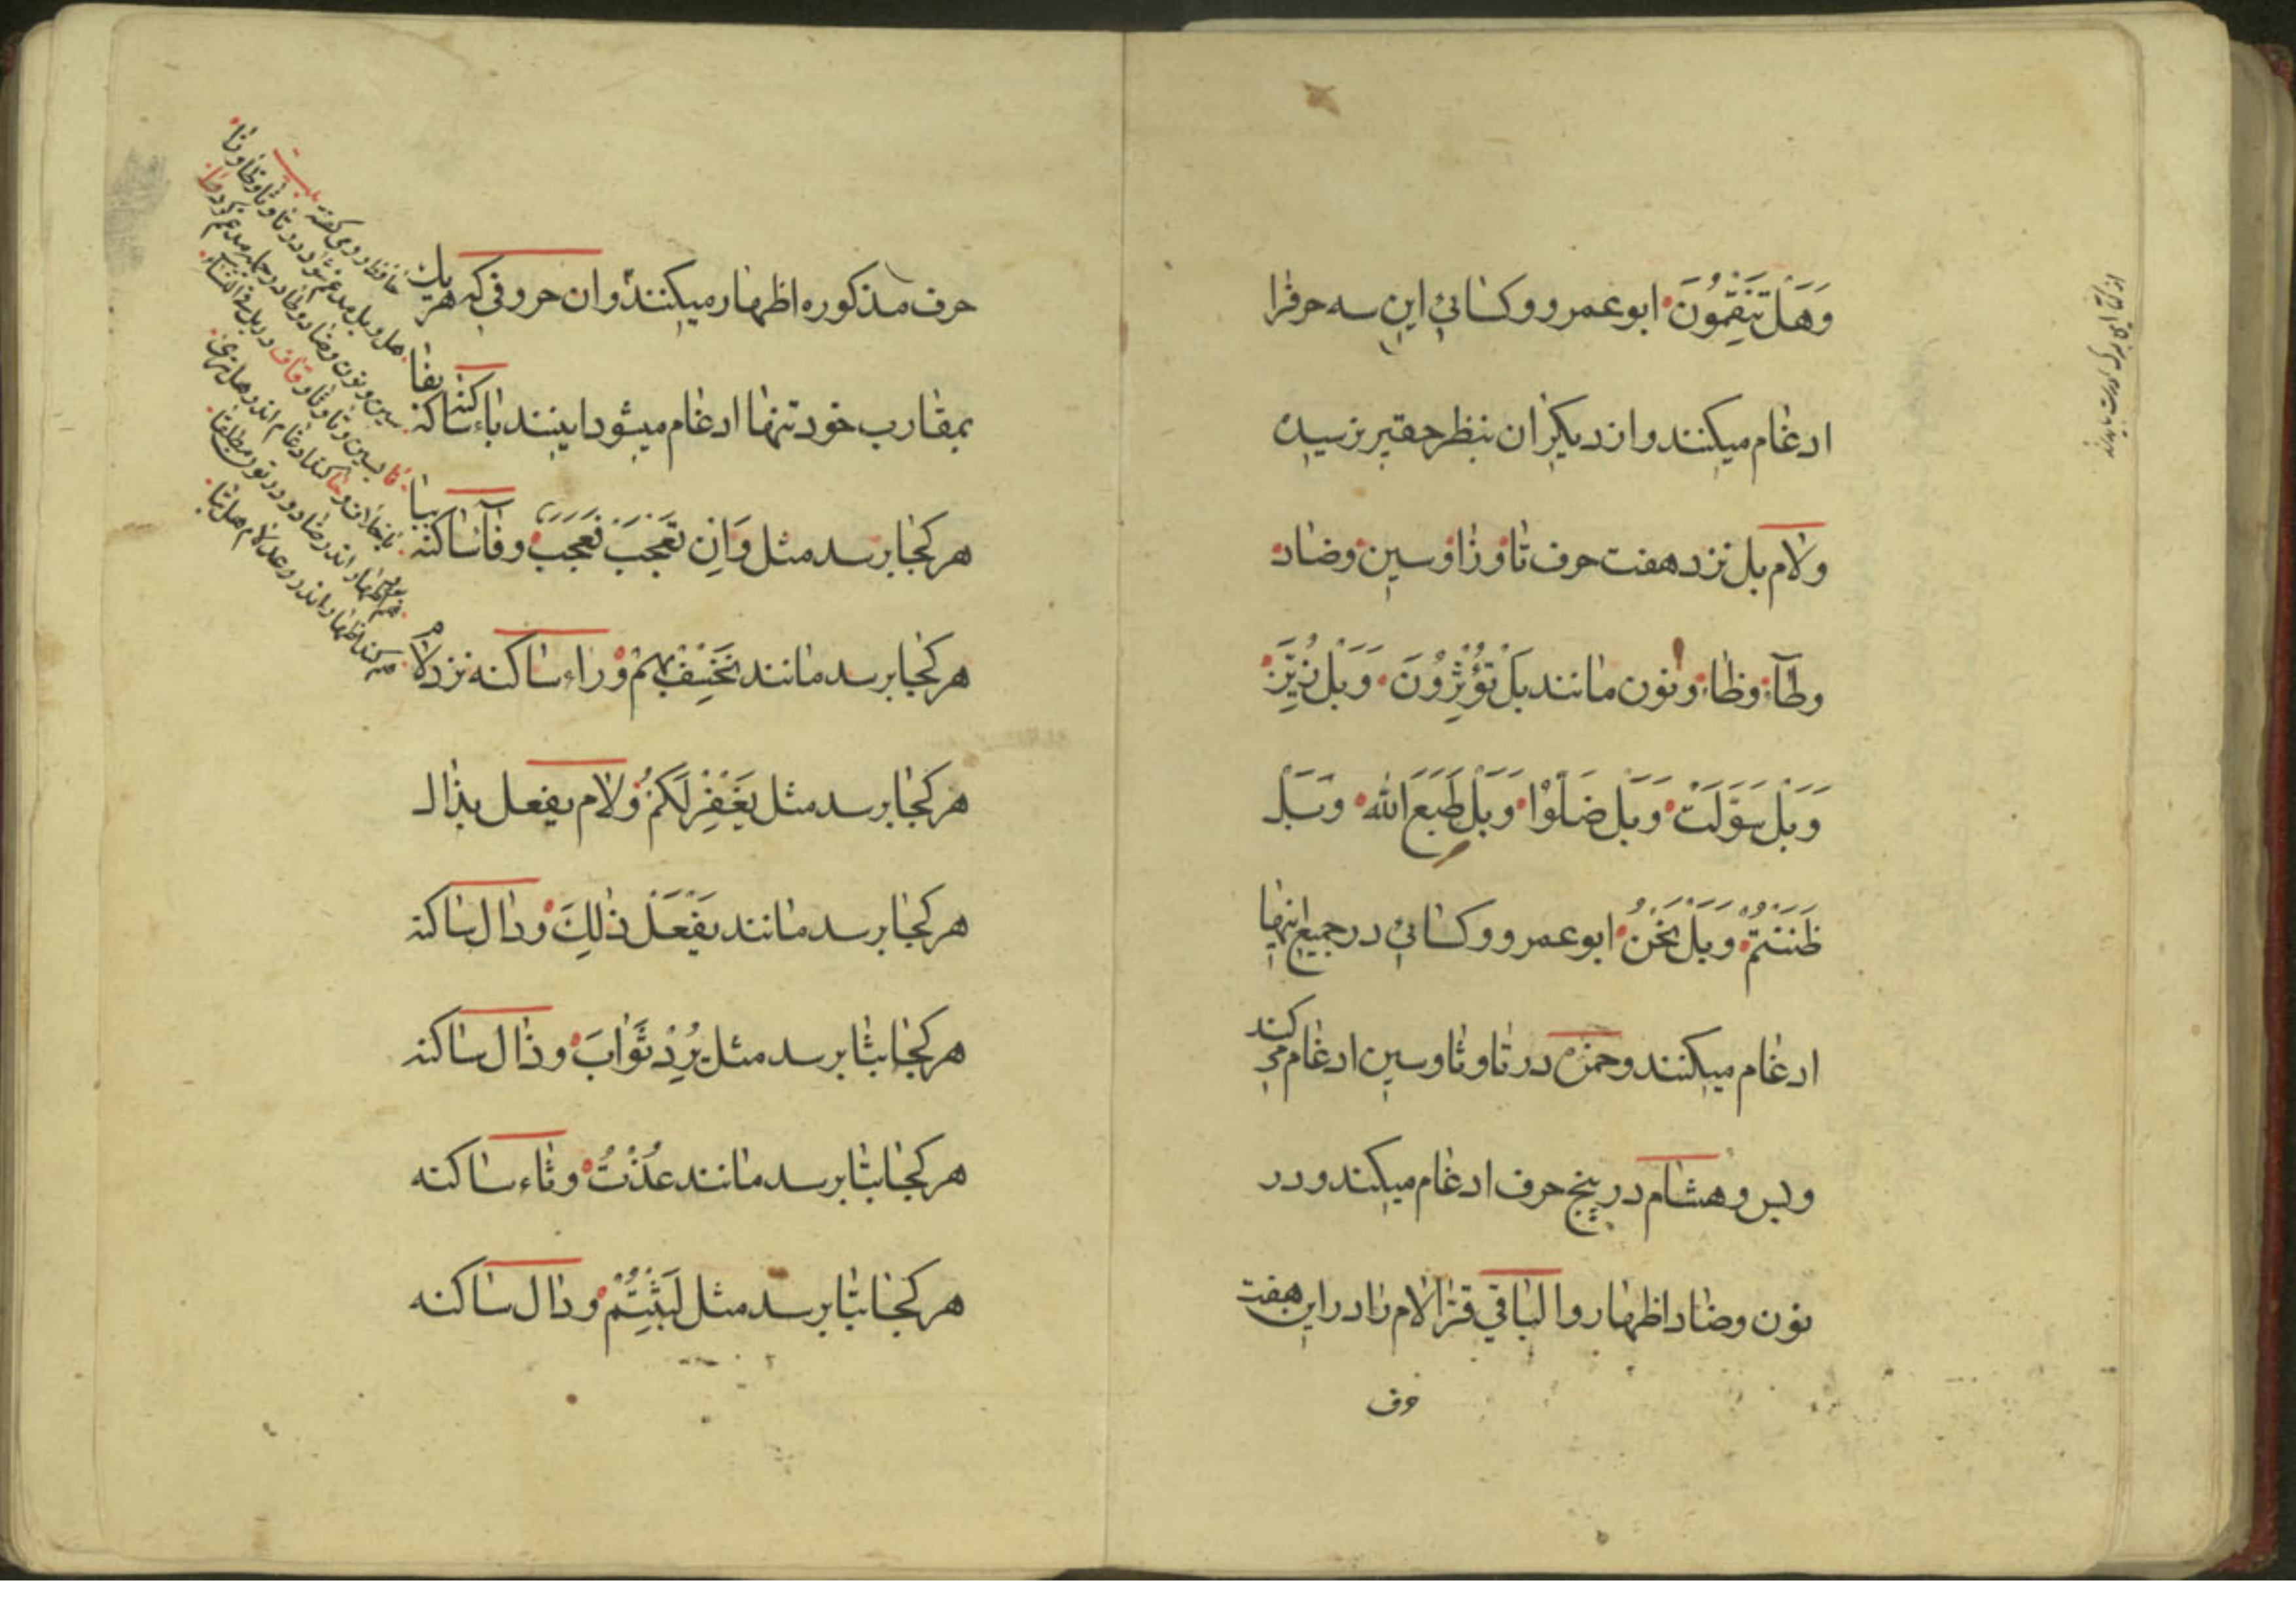 وَهَلْ تَنقِمُونَ ابو عمرو و کسائی این سه حرفرا
ادغام میکنند و از دیکران بنظر حقیر نرسیده
و لام بل نزد هفت حرف تا و زا و سین و ضاد
و طآء و ظاء و نون مانند بَلْ تُؤْثِرُونَ وَ بَلْ زُيِّنَ
وَ بَلْ سَوَّلَتْ وَ بَلْ ضَلُّوْا وَ بَلْ طَبَعَ اللّٰه وَ بَلْ
ظَنَنْتُمْ وَ بَلْ نَحْنُ ابو عمرو و کسائی در جمیع اینها
ادغام میکنند و حمزه در تا و ثا و سین ادغام می کند
و بس و هشام در پنج حرف ادغام میکند و در
نون و ضاد اظهار و الباقی قرّا لام را در این هفت
حرف
حرف مذکوره اظهار میکنند و ان حروفی که هر یک
بمقارب خود تنها ادغام میشود اینند باء ساکنه بفا
هر کجا برسد مثل وَاِنْ تَعْجَبْ فَعَجَبٌ و فآء ساکنه ببا
هر کجا برسد مانند نَخْسِفْ بِهِمْ و راء ساکنه نزد لام
هر کجا برسد مثل يَغْفِرْ لَكُمْ و لام یفعل بذال
هر کجا برسد مانند يَفْعَلْ ذٰلِكَ و دال ساکنه
هر کجا بثا برسد مثل يُرِدْ ثَوٰابَ و ذال ساکنه
هر کجا بتا برسد مانند عُذْتُ و ثاء ساکنه
هر کجا بتا برسد مثل لَبِثْتُمْ و دال ساکنه
هل و بل مدغم شود در تا و ثا و ظا و زا
سین و نون و ضاد و طا